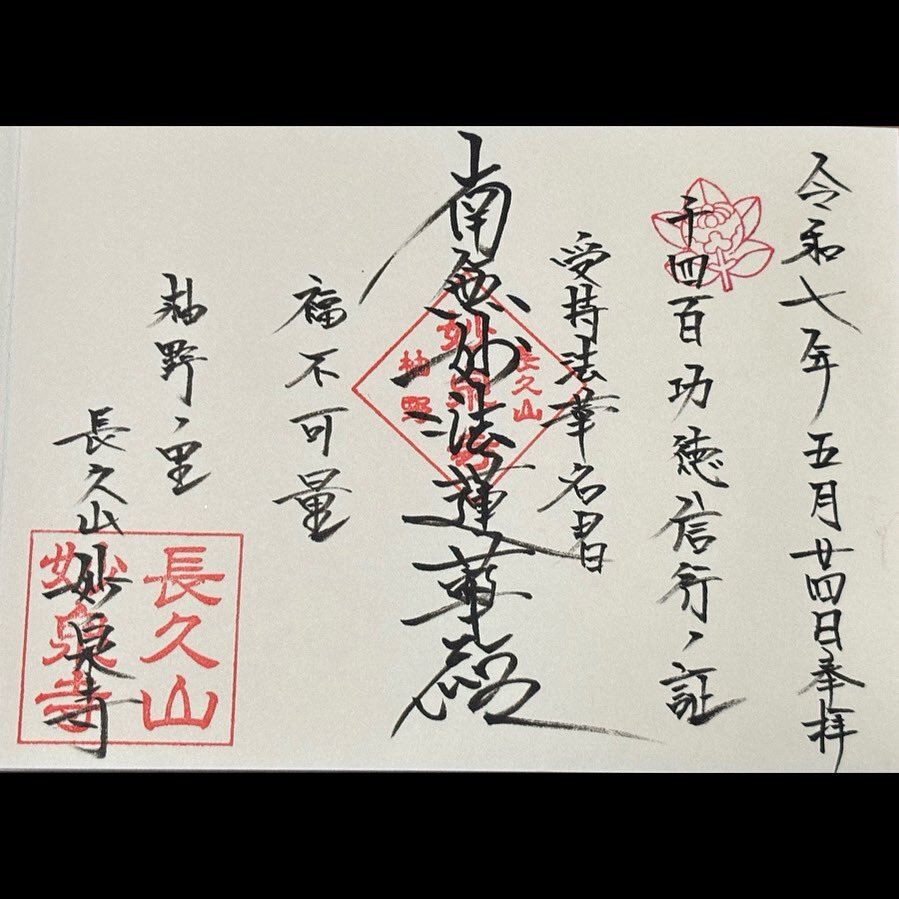 令和七年五月廿四日奉拝
千四百功徳信行ノ証
受持法華名者
南無妙法蓮華経
福不可量
柚野ノ里
長久山妙泉寺
長久山
妙泉寺
柚野
長久山
妙泉寺